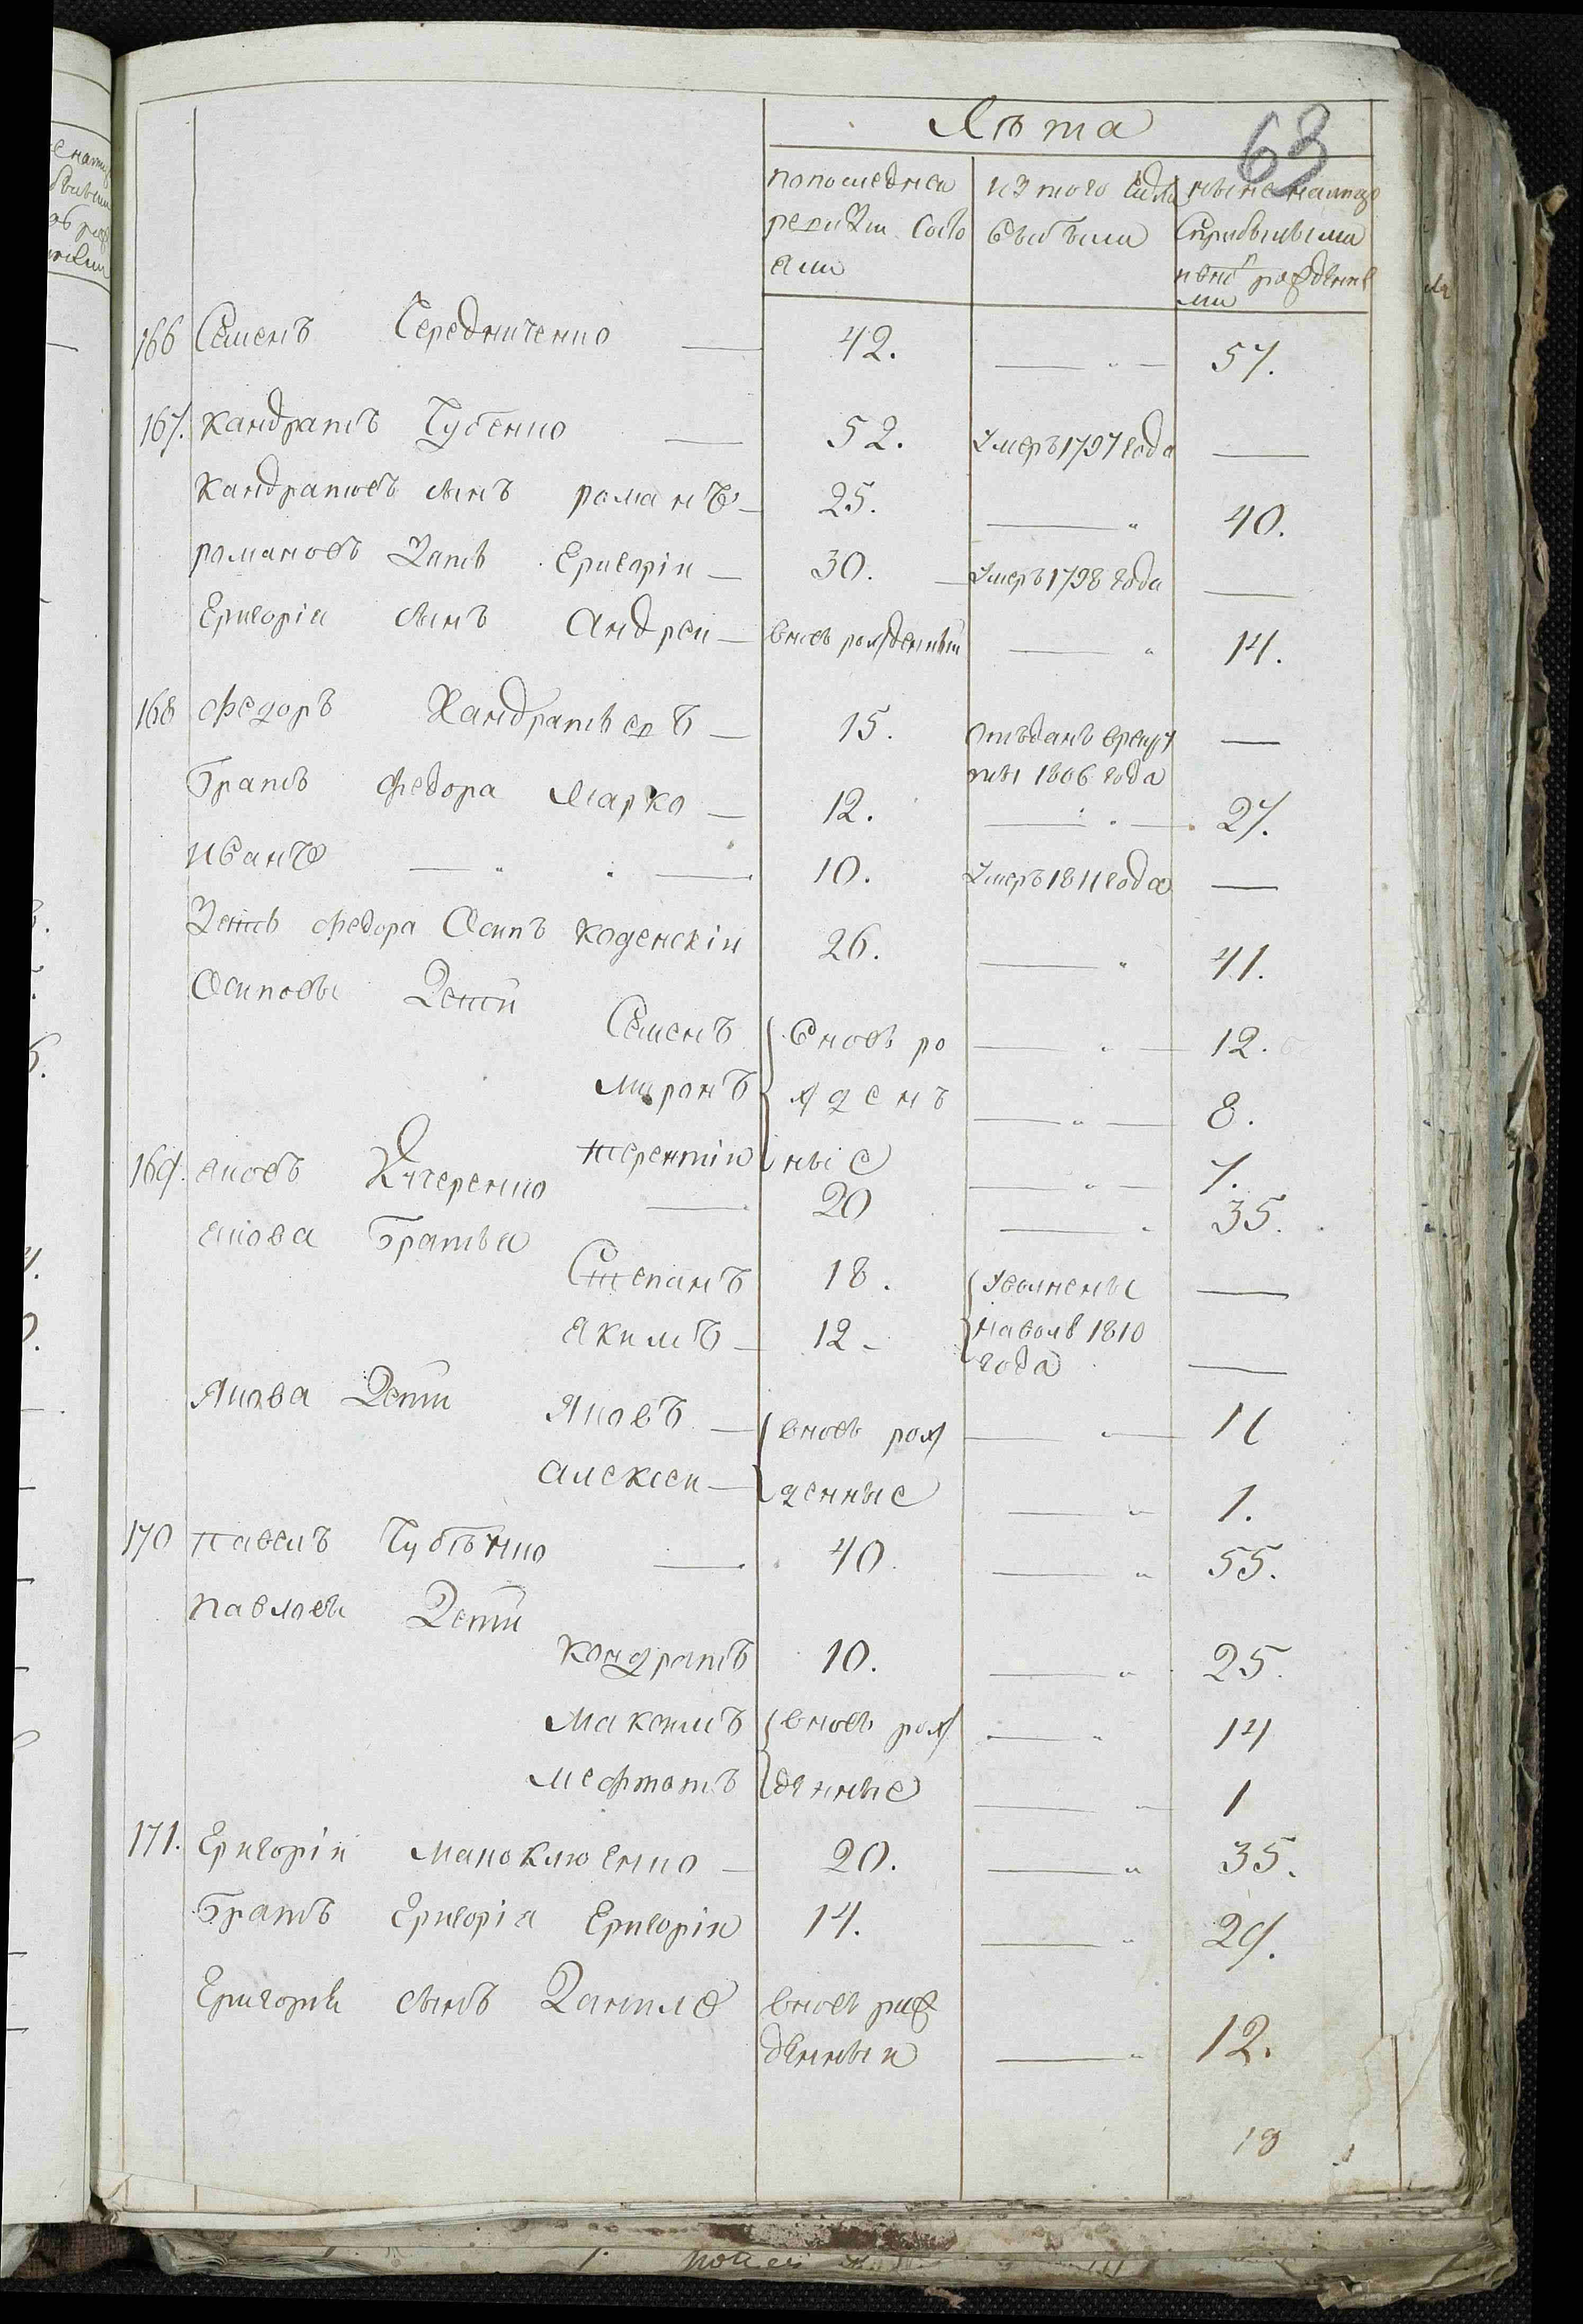 Лѣта
63
попоследней ревизіи состояли
изтого числа выбыли
ныне налицо Сприбылыми ивнов рожденными
166 Семенъ Середниченко — 42. — 57.
167. Кандратъ Губенко — 52. Умеръ 1797 года —
Кандратовъ сынъ романъ — 25. — 40.
романовъ Зять Григоріи — 30. — Умеръ 1798 года —
Григорія сынъ Андреи — вновь рожденныи — 14.
168 Федоръ Кандратьевъ — 15. отъданъ врекруты 1806 года —
Братъ Федора Марко — 12. — 27.
Иванъ — 10. Умеръ 1811 года —
Зеть Федора Осипъ Коденскіи 26. — 41.
Осиповы Дети
Семенъ вновь ро — 12.
Миронъ жден — 8.
терентіи ные — 7.
169. яковъ Кучеренко — 20 — 35.
якова Братья
Степанъ 18. уволнены —
якимъ — 12 — наволю 1810 года —
Якова Дети Яковъ — вновь рож — 11
Алексеи — денные — 1.
170 павелъ Губѣнко — 40. — 55.
павловы Дети
Кондратъ 10. — 25.
Максимъ вновь рож — 14
Мефтотъ денные — 1
171. Григоріи — 20. — 35.
Братъ Григорія Григоріи 14. — 29.
Григория сынъ Данило вновь рожденныи — 12.
19